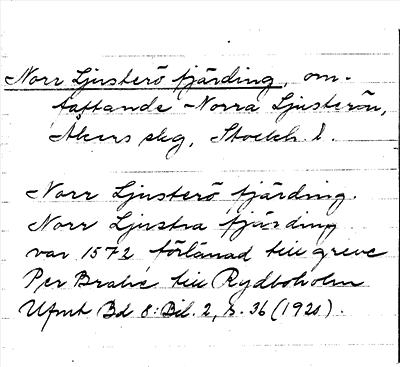 Norr Ljusterö fjärding, om-
fattande Norra Ljusterön,
Åkers skg, Stockh. l.
Norr Ljusterö fjärding.
Norr Ljustra fjärding
var 1572 förlänad till greve
Per Brahe till Rydboholm
Ufmt Bd 8: Bil. 2, s. 36 (1920).